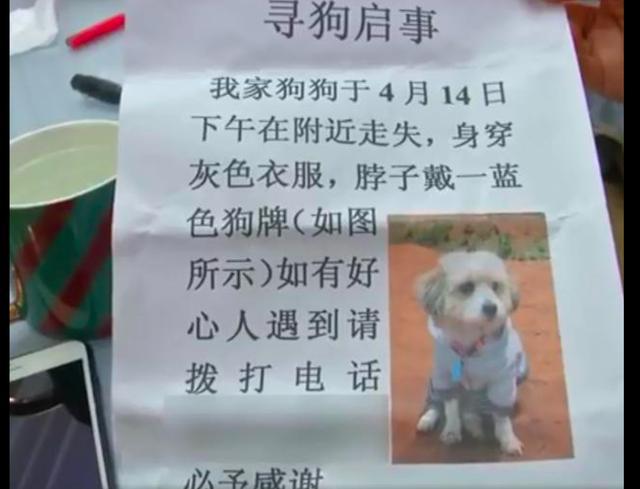 寻狗启事
我家狗狗于4月14日
下午在附近走失，身穿
灰色衣服，脖子戴一蓝
色狗牌（如图
所示）如有好
心人遇到请
拨打电话
必予感谢